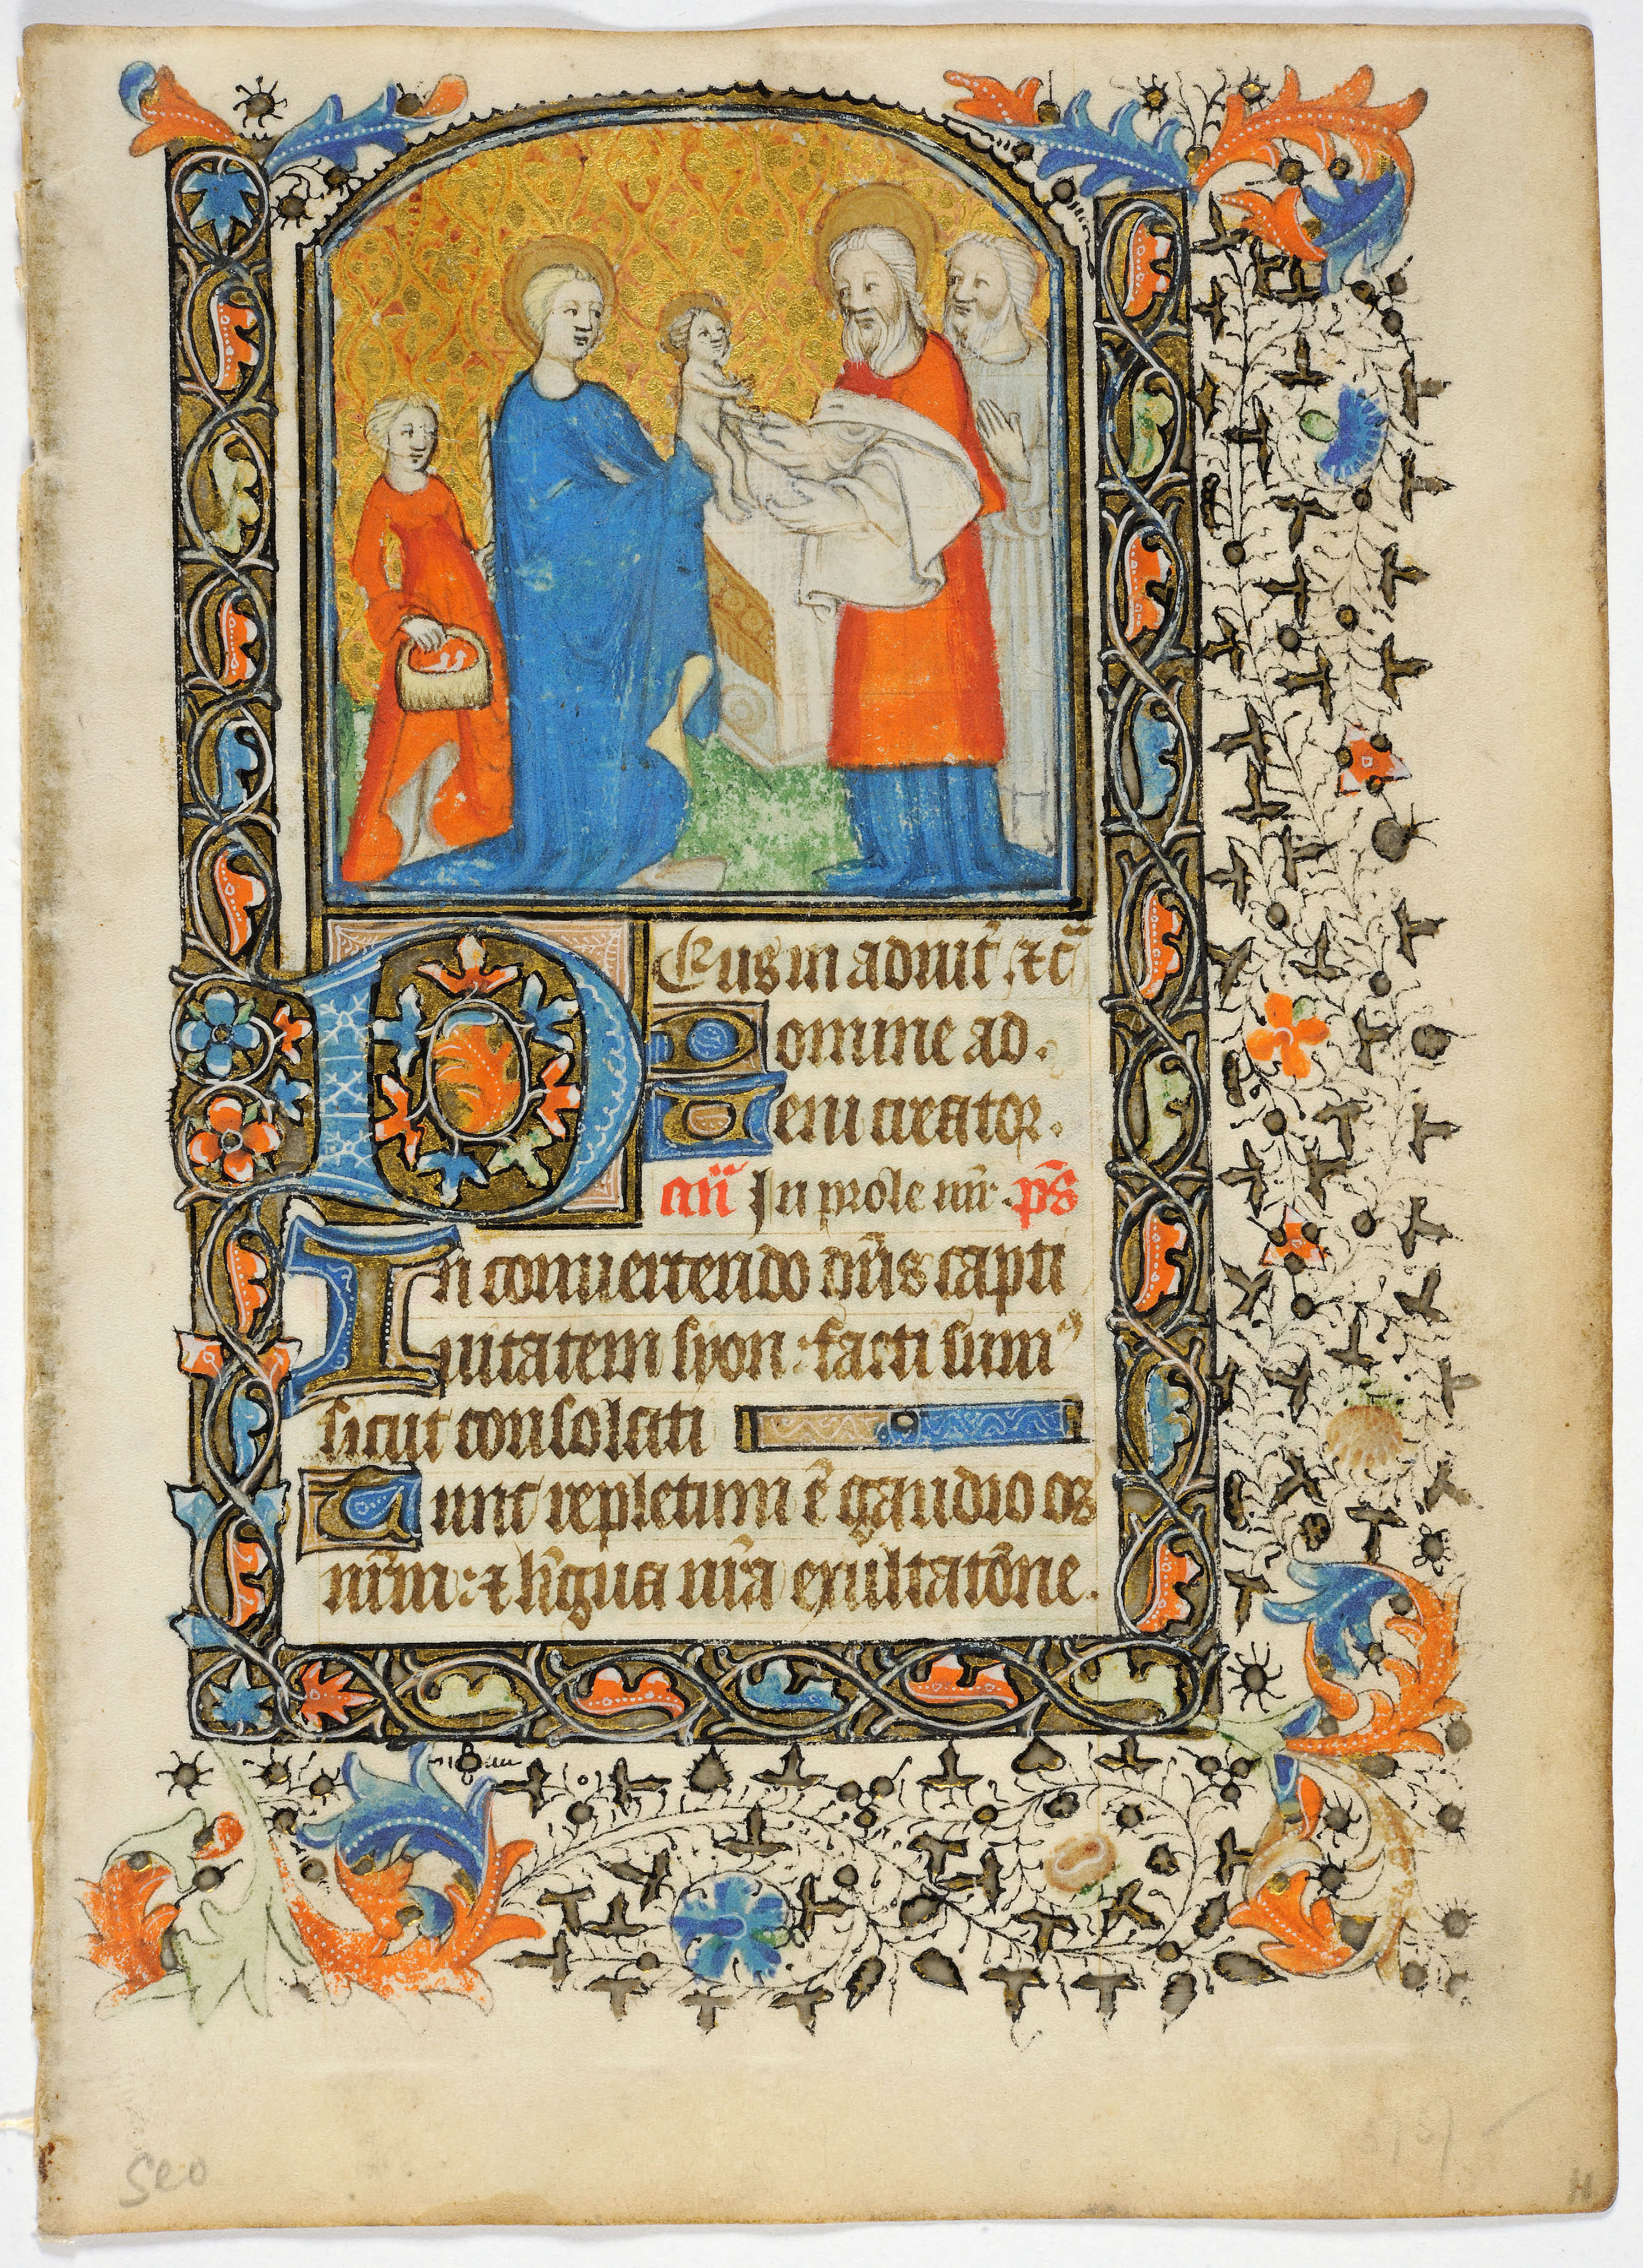 Deus in adiut̄ . ⁊c̄
Domine ad .
Veni creator .
an̄ In prole mr̄ . ps̄
In conuertendo dn̄s capti
uitatem syon : facti sumꝰ
sicut consolati
Tunc repletum ē gaudio os
nr̄m : ⁊ līgua nr̄a exultatōne .
Seo
H